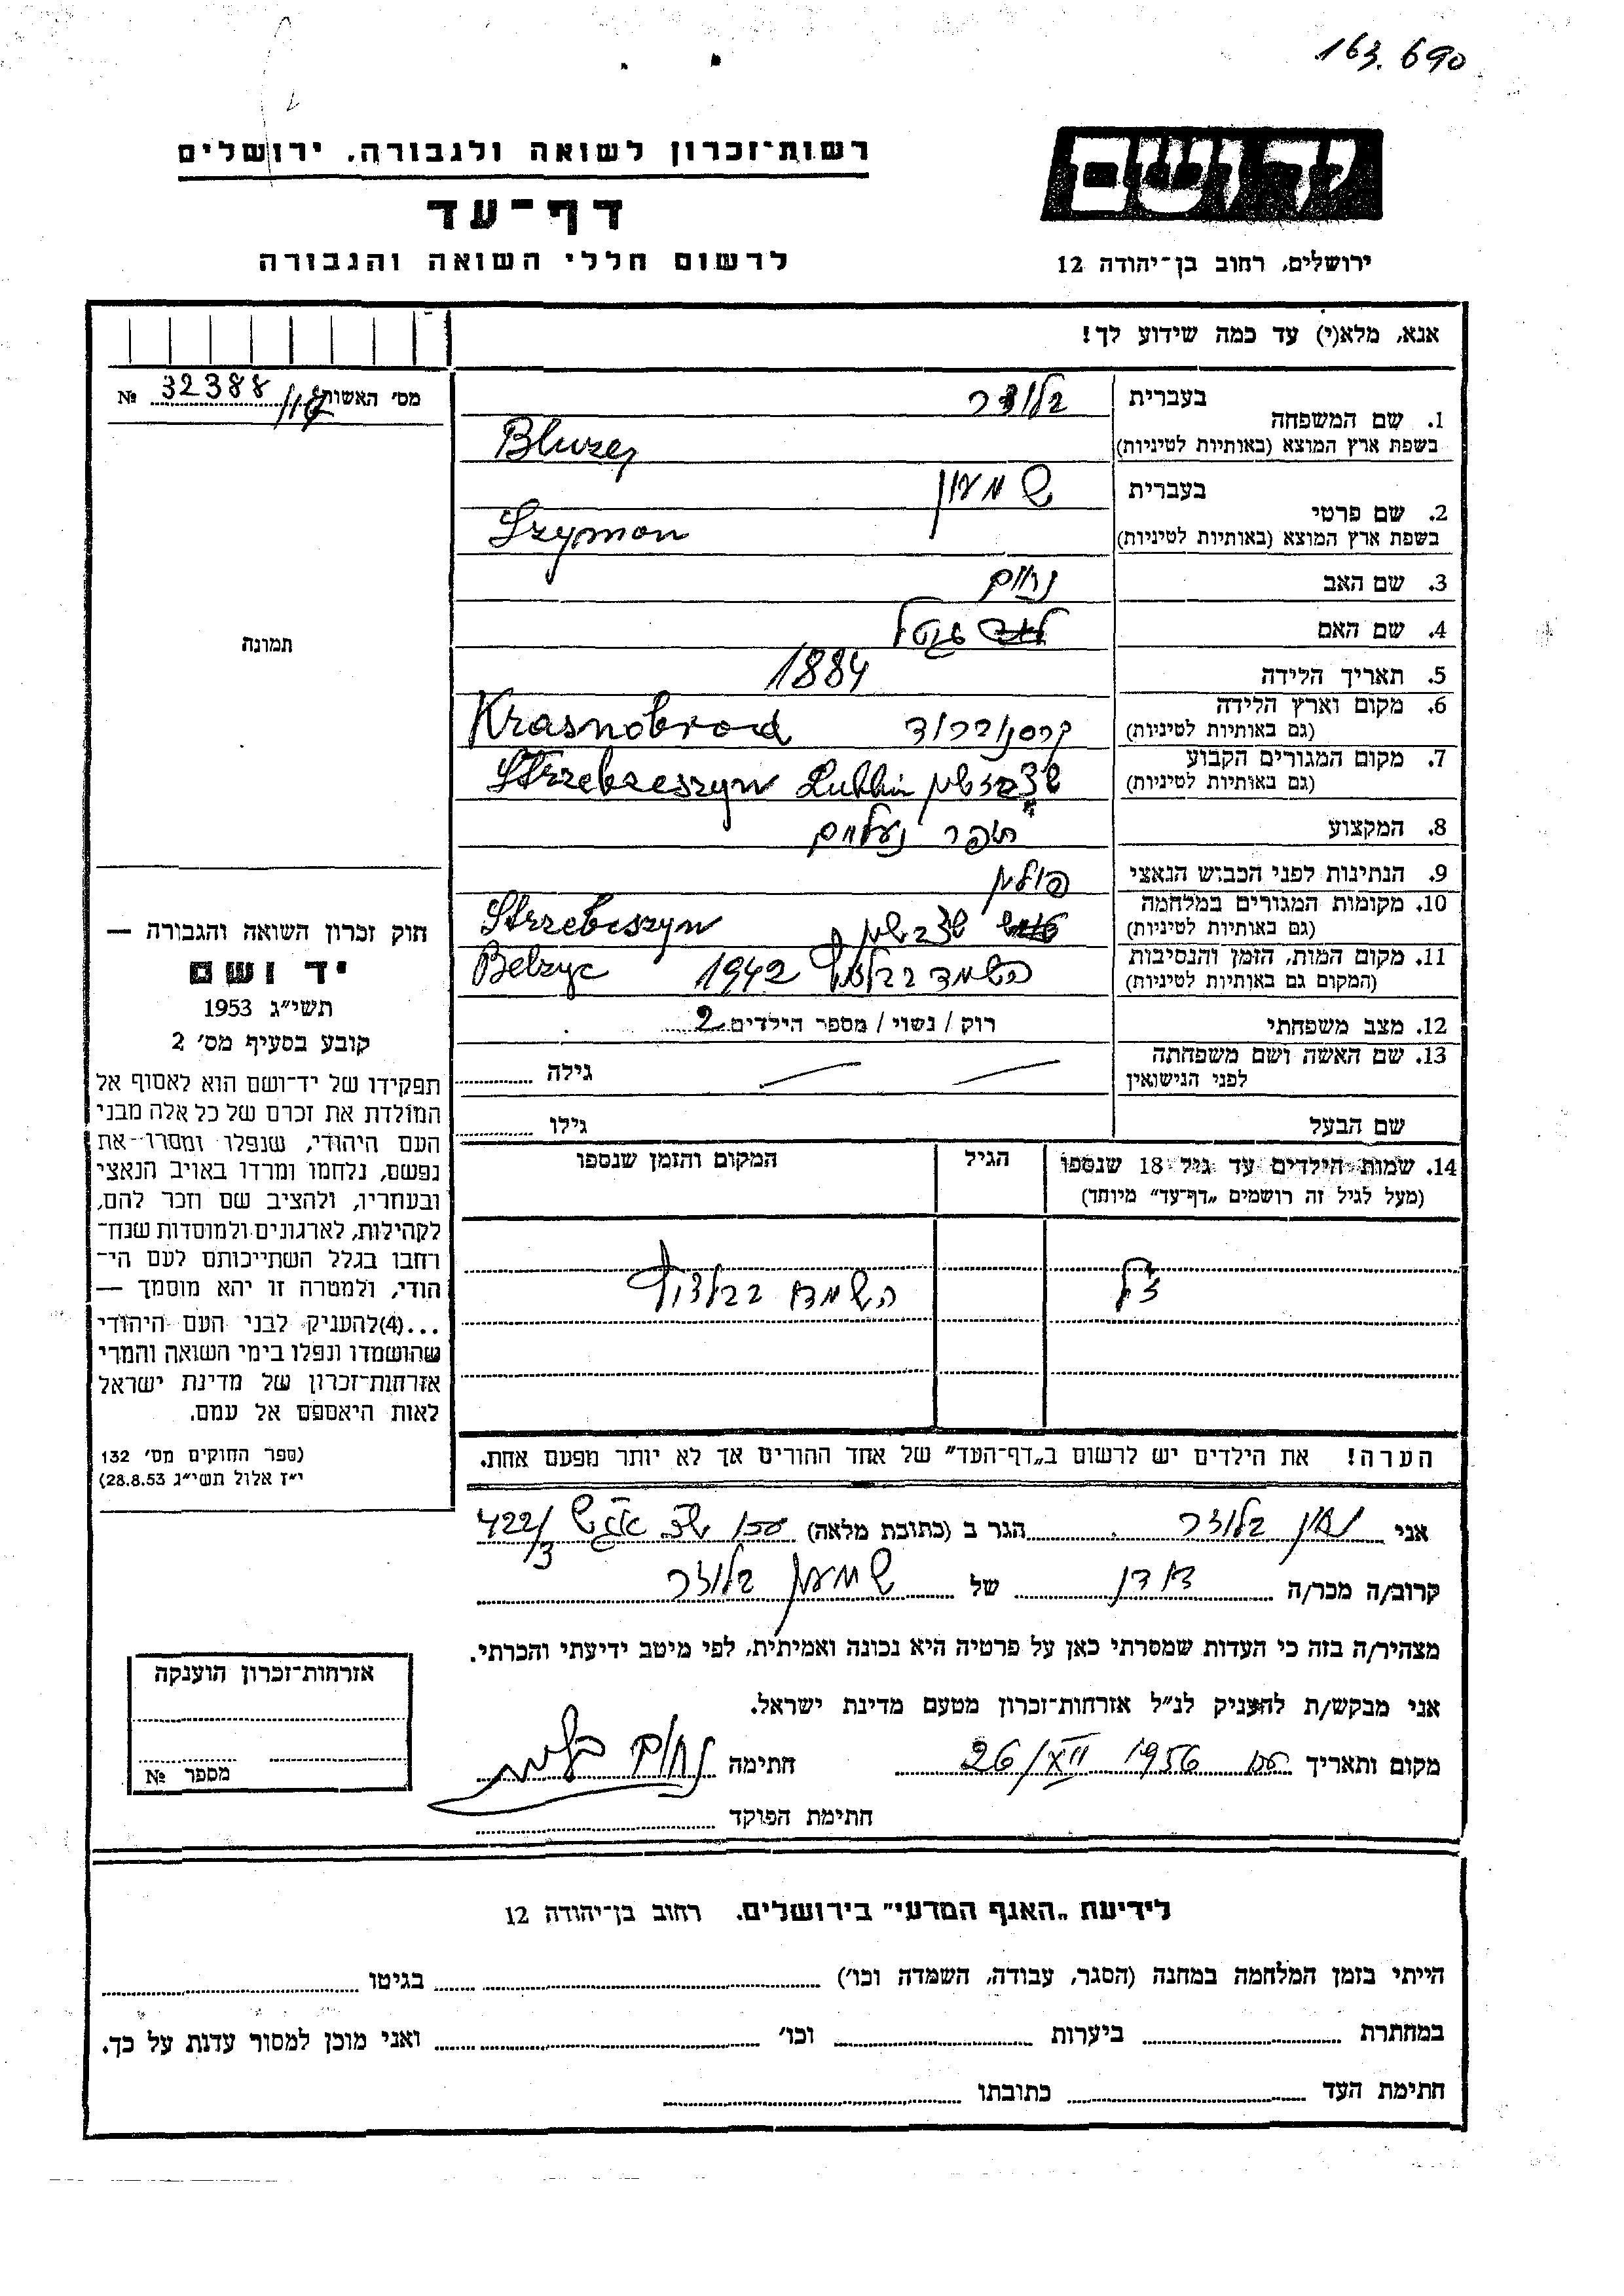 163.690
רשות־זכרון לשואה ולגבורה, ירושלים
דף־עד
לרשום חללי השואה והגבורה
יד ושם
ירושלים, רחוב בן־יהודה 12
אנא, מלא(י) עד כמה שידוע לך!
מס׳ האשות 32388 №
1. שם המשפחה
בעברית בלוזר
בשפת ארץ המוצא (באותיות לטיניות) Bluzer
2. שם פרטי
בעברית שמעון
בשפת ארץ המוצא (באותיות לטיניות) Szymon
3. שם האב נחום
4. שם האם
5. תאריך הלידה 1884
6. מקום וארץ הלידה
(גם באותיות לטיניות) קרסנוברוד Krasnobrod
7. מקום המגורים הקבוע
(גם באותיות לטיניות) Lublin Strzebrzeszyn
8. המקצוע תופר נעלים
9. הנתינות לפני הכבוש הנאצי פולין
10. מקומות המגורים במלחמה
(גם באותיות לטיניות) Strzebeszyn
11. מקום המות, הזמן והנסיבות
(המקום גם באותיות לטיניות) 1942 Belzyc
12. מצב משפחתי רוק / נשוי / מספר הילדים 2
13. שם האשה ושם משפחתה
לפני הנישואין גילה
שם הבעל גילו
14. שמות הילדים עד גיל 18 שנספו
(מעל לגיל זה רושמים „דף־עד” מיוחד)
הגיל
המקום והזמן שנספו
תמונה
חוק זכרון השואה והגבורה —
יד ושם
תשי״ג 1953
קובע בסעיף מס׳ 2
תפקידו של יד־ושם הוא לאסוף אל
המולדת את זכרם של כל אלה מבני
העם היהודי, שנפלו ומסרו את
נפשם, נלחמו ומרדו באויב הנאצי
ובעוזריו, ולהציב שם וזכר להם,
לקהילות, לארגונים ולמוסדות שנח־
רחבו בגלל השתייכותם לעם הי־
הודי, ולמטרה זו יהא מוסמך —
...(4)להעניק לבני העם היהודי
שהושמדו ונפלו בימי השואה והמרי
אזרחות־זכרון של מדינת ישראל
לאות היאספם אל עמם.
(ספר החוקים מס׳ 132
י״ז אלול תשי״ג 28.8.53)
הערה! את הילדים יש לרשום ב„דף־העד” של אחד ההורים אך לא יותר מפעם אחת.
אני בלוזר הגר ב (כתובת מלאה) 422/3
קרוב/ה מכר/ה של שמעון בלוזר
מצהיר/ה בזה כי העדות שמסרתי כאן על פרטיה היא נכונה ואמיתית, לפי מיטב ידיעתי והכרתי.
אני מבקש/ת להעניק לנ״ל אזרחות־זכרון מטעם מדינת ישראל.
מקום ותאריך 26/XII 1956 חתימה
חתימת הפוקד
אזרחות־זכרון הוענקה
מספר №
לידיעת „האגף המדעי” בירושלים. רחוב בן־יהודה 12
הייתי בזמן המלחמה במחנה (הסגר, עבודה, השמדה וכו׳) בגיטו
במחתרת ביערות וכו׳ ואני מוכן למסור עדות על כך.
חתימת העד כתובתו